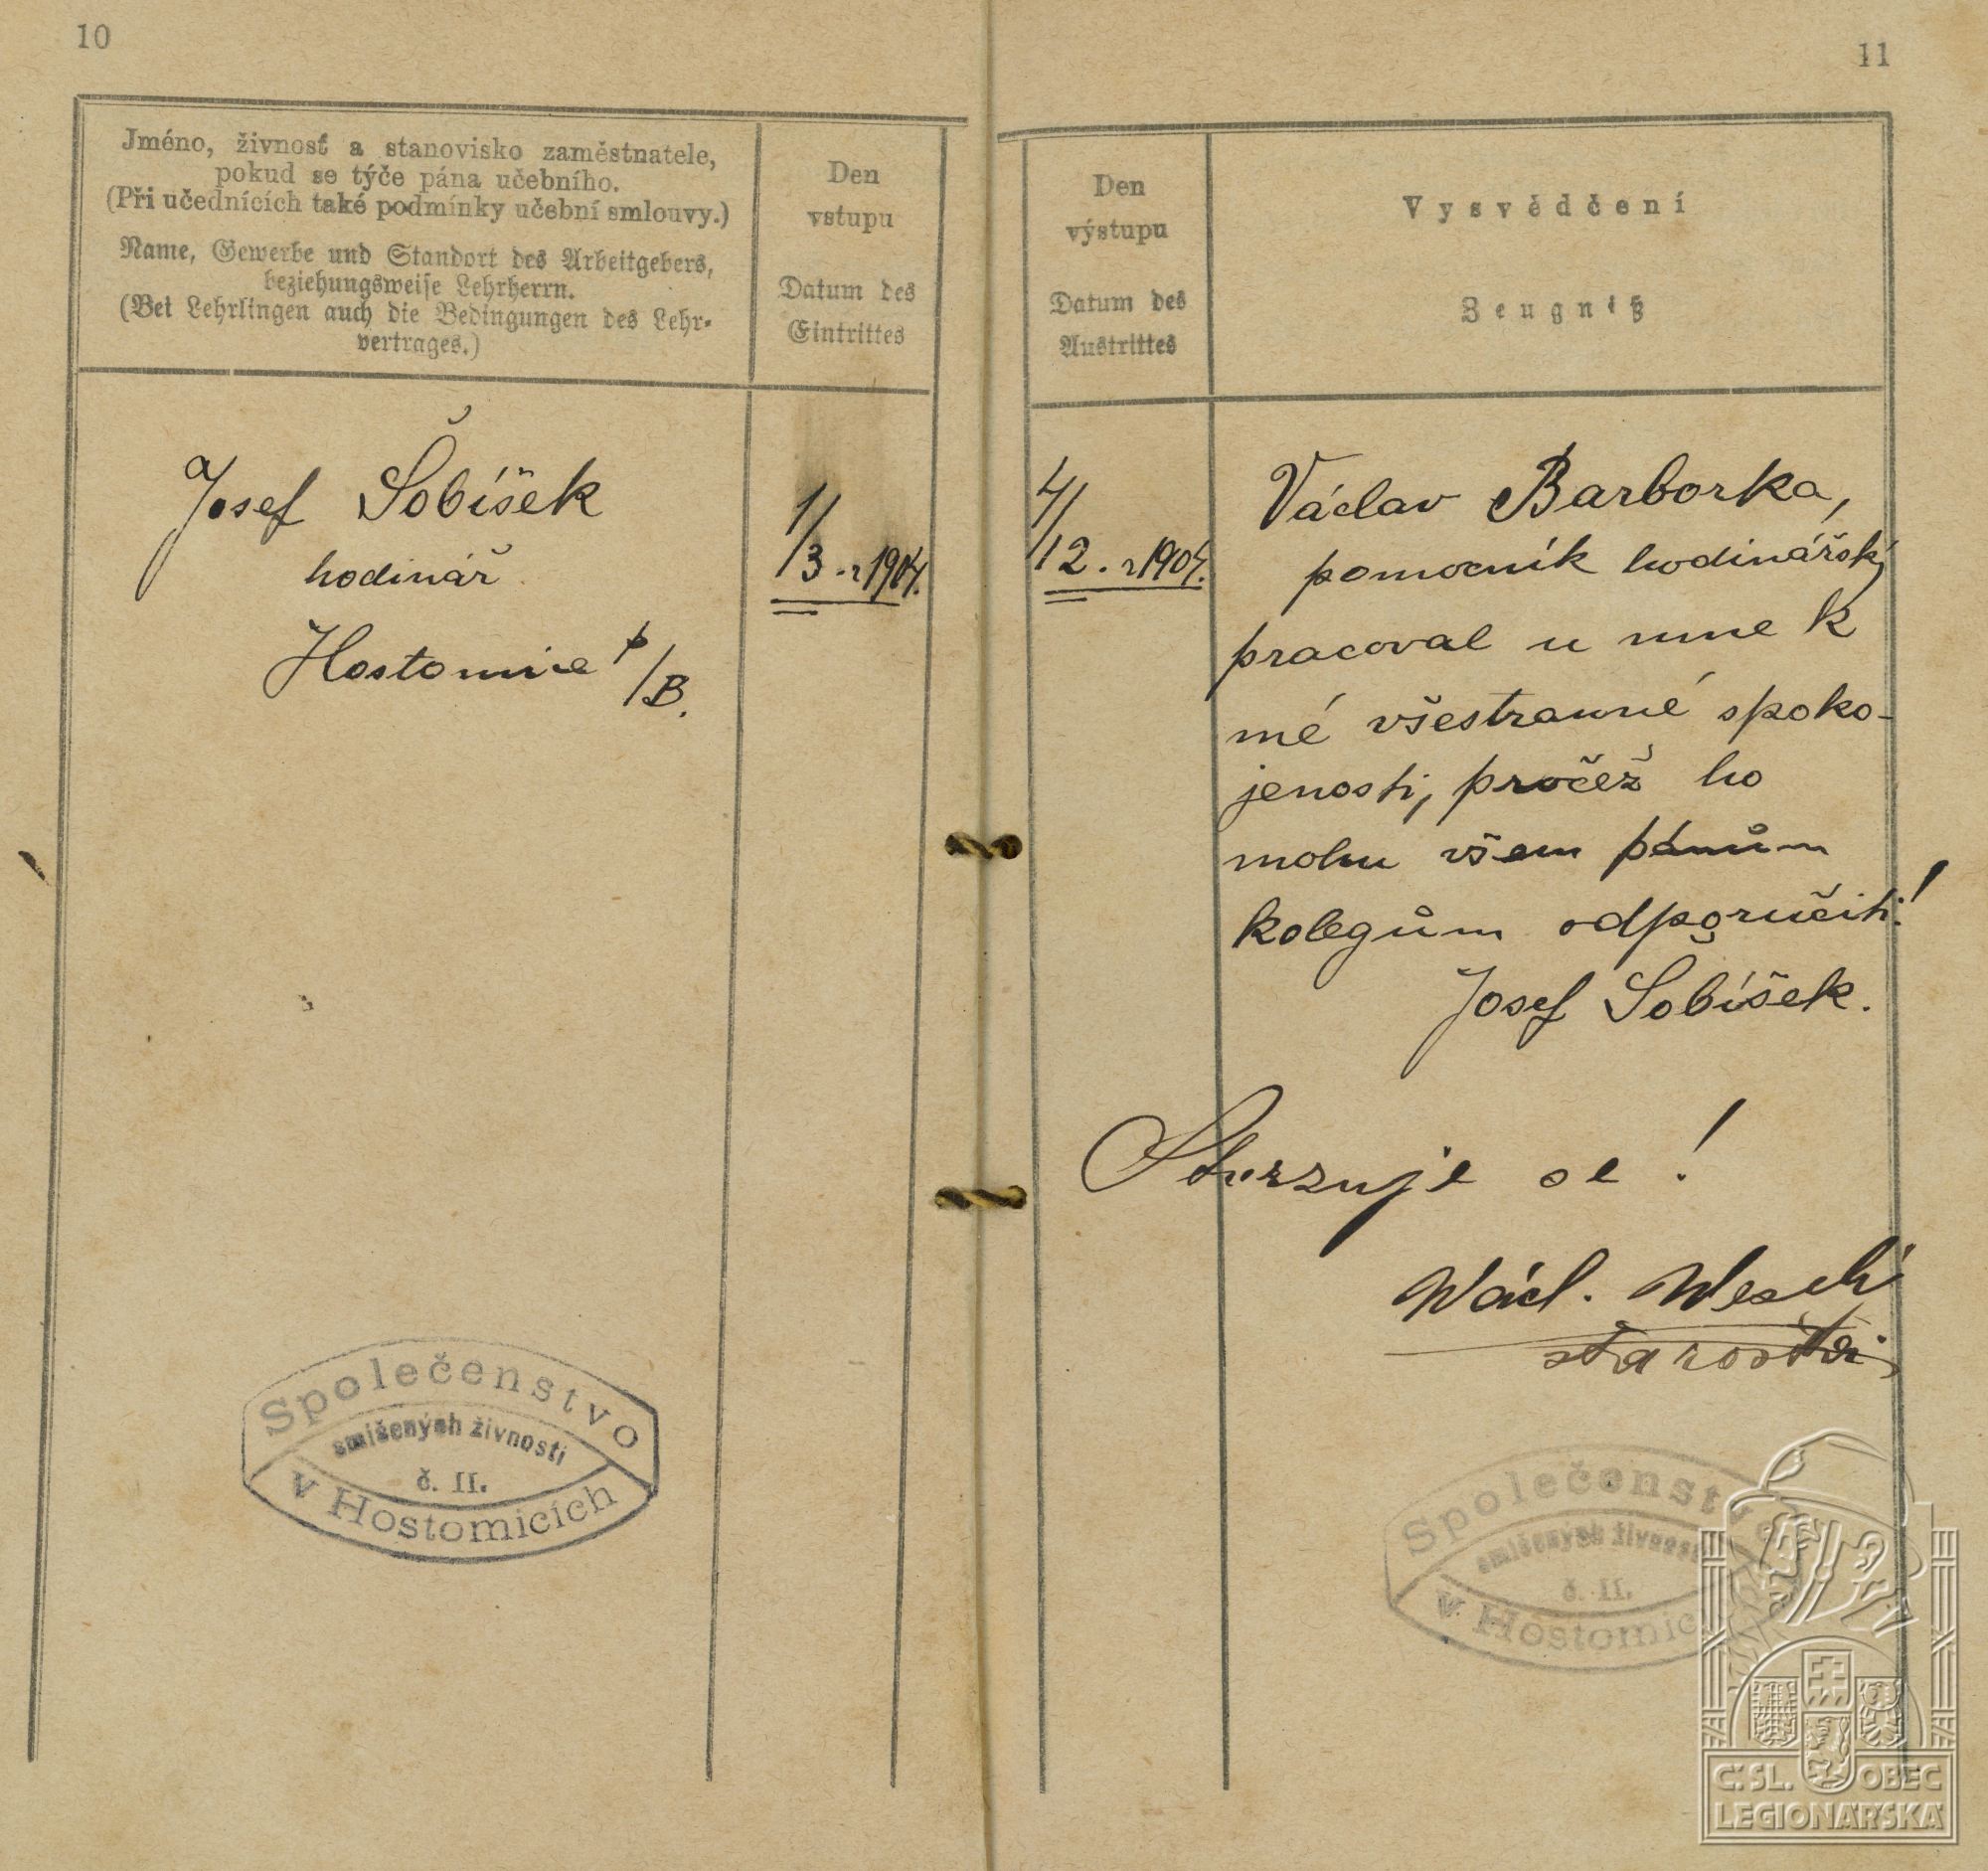 10
Jméno, živnosť a stanovisko zaměstnatele,
pokud se týče pána učebního.
(Při učednících také podmínky učební smlouvy.)
Name, Gewerbe und Standort des Arbeitgebers,
beziehungsweise Lehrherrn.
(Bei Lehrlingen auch die Bedingungen des Lehr-
vertrages.)
Den
vstupu
Datum des
Eintrittes
Josef Šobíšek
hodinář
Hostomice p/B.
1/3. r 1904.
Společenstvo
smíšených živností
č. II.
v Hostomicích
11
Den
výstupu
Datum des
Austrittes
Vysvědčení
Zeugniß
4/12. r 1904.
Václav Barborka,
pomocník hodinářský
pracoval u mne k
mé všestranné spoko-
jenosti, pročež ho
mohu všem pánům
kolegům odporučiti!
Josef Šobíšek.
Stvrzuje se!
Wácl. Weselí
starosta
Společenstvo
smíšených živností
č. II.
v Hostomic
Č.SL. OBEC
LEGIONÁŘSKÁ